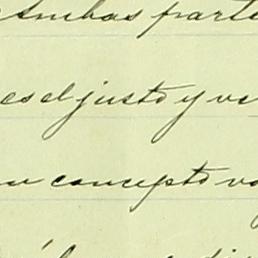 Ambas parte
es el justo y va
en concepto va